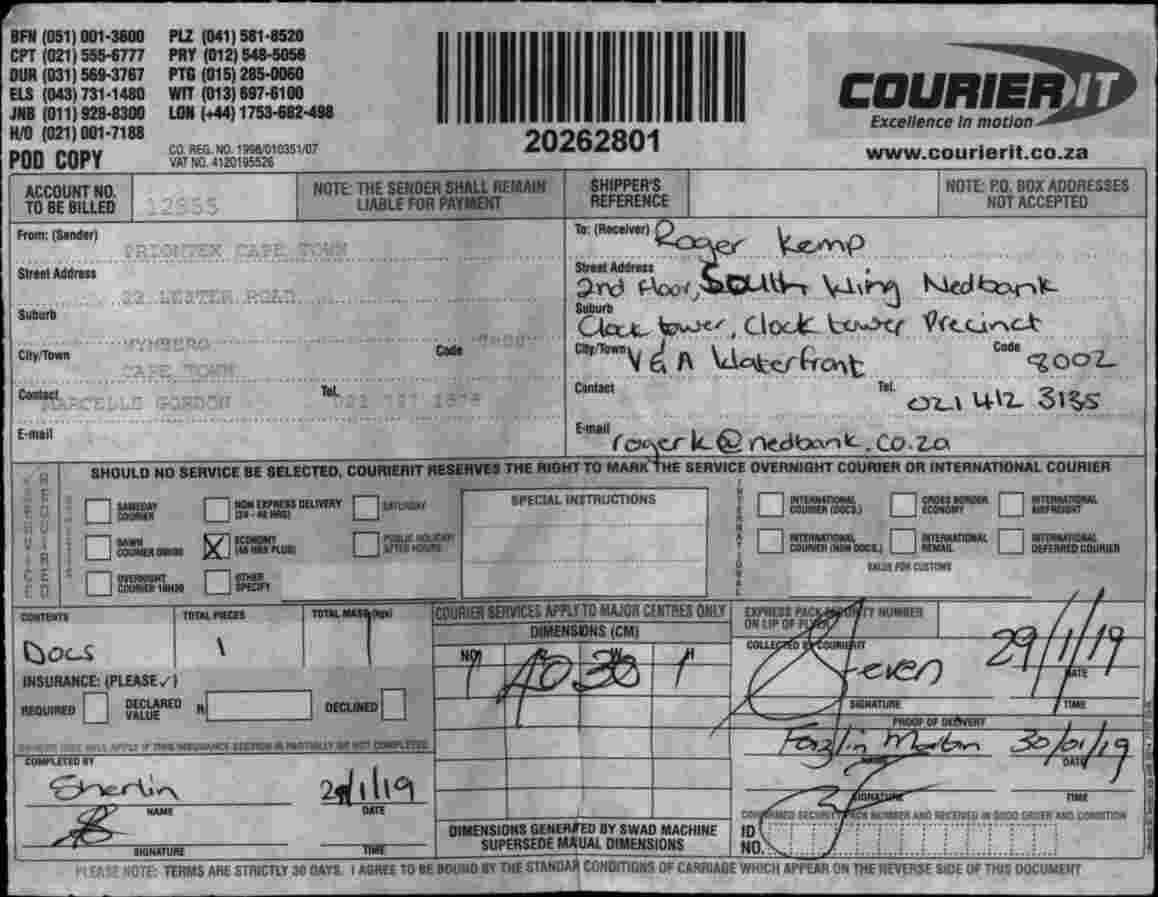 BFN (051) 001-3600 PLZ (041) 581-8520
CPT (021) 555-6777 PRY (012) 548-5056
DUR (031) 569-3767 PTG (015) 285-0060
ELS (043) 731-1480 WIT (013) 697-6100
JNB (011) 929-8300 LON (+44) 1753-682-498
H/O (021) 001-7188
POD COPY
CO. REG. NO. 1998/010351/07
VAT NO. 4120195526
20262801
COURIER IT
Excellence in motion
www.courierit.co.za
ACCOUNT NO. TO BE BILLED
NOTE: THE SENDER SHALL REMAIN LIABLE FOR PAYMENT
SHIPPER'S REFERENCE
NOTE: P.O. BOX ADDRESSES NOT ACCEPTED
From: (Sender)
CAPE TOWN
Street Address
22 LESTER ROAD
Suburb
WYNBERG
City/Town
CAPE TOWN
Code
Contact MARCELLE GORDON
Tel.
E-mail
To: (Receiver) Roger Kemp
Street Address
2nd Floor, South Wing Nedbank
Suburb
Clock tower, Clock tower Precinct
City/Town V & A Waterfront Code 8002
Contact Tel. 021 412 3135
E-mail rogerk@nedbank.co.za
SHOULD NO SERVICE BE SELECTED, COURIERIT RESERVES THE RIGHT TO MARK THE SERVICE OVERNIGHT COURIER OR INTERNATIONAL COURIER
SERVICE REQUIRED
SAMEDAY COURIER
NON EXPRESS DELIVERY (24 - 48 HRS)
SATURDAY
DAWN COURIER 09H00
X ECONOMY (48 HRS PLUS)
PUBLIC HOLIDAY AFTER HOURS
OVERNIGHT COURIER 10H30
OTHER SPECIFY
SPECIAL INSTRUCTIONS
INTERNATIONAL
INTERNATIONAL COURIER (DOCS.)
CROSS BORDER ECONOMY
INTERNATIONAL AIRFREIGHT
INTERNATIONAL COURIER (NON DOCS.)
INTERNATIONAL REMAIL
INTERNATIONAL DEFERRED COURIER
VALUE FOR CUSTOMS
CONTENTS
Docs
TOTAL PIECES
1
TOTAL MASS (kgs)
1
INSURANCE: (PLEASE ✓)
REQUIRED
DECLARED VALUE R
DECLINED
COMPLETED BY
Sherlin
NAME
29/1/19
DATE
SIGNATURE
TIME
COURIER SERVICES APPLY TO MAJOR CENTRES ONLY
DIMENSIONS (CM)
NO L W H
1 40 30 1
DIMENSIONS GENERATED BY SWAD MACHINE SUPERSEDE MAUAL DIMENSIONS
EXPRESS PACK SECURITY NUMBER ON LIP OF FLYER
COLLECTED BY COURIERIT
29/1/19
DATE
SIGNATURE
TIME
PROOF OF DELIVERY
30/01/19
NAME
DATE
SIGNATURE
TIME
CONFIRMED SECURITY PACK NUMBER AND RECEIVED IN GOOD ORDER AND CONDITION
ID NO.
PLEASE NOTE: TERMS ARE STRICTLY 30 DAYS. I AGREE TO BE BOUND BY THE STANDAR CONDITIONS OF CARRIAGE WHICH APPEAR ON THE REVERSE SIDE OF THIS DOCUMENT